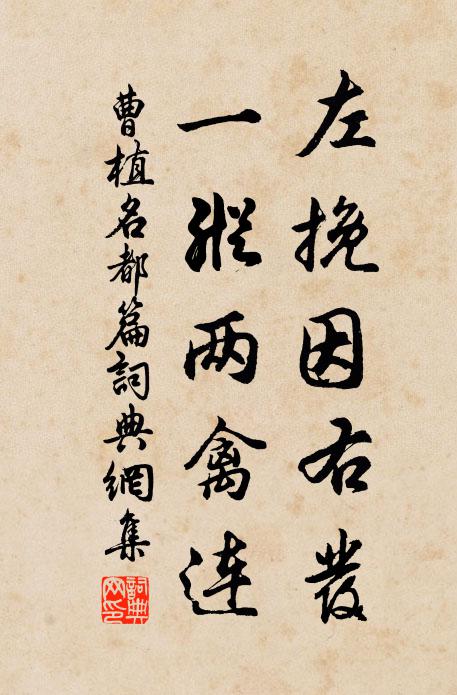 左挽因右發
一縱两禽連
曹植名都篇詞典網集
詞典网印